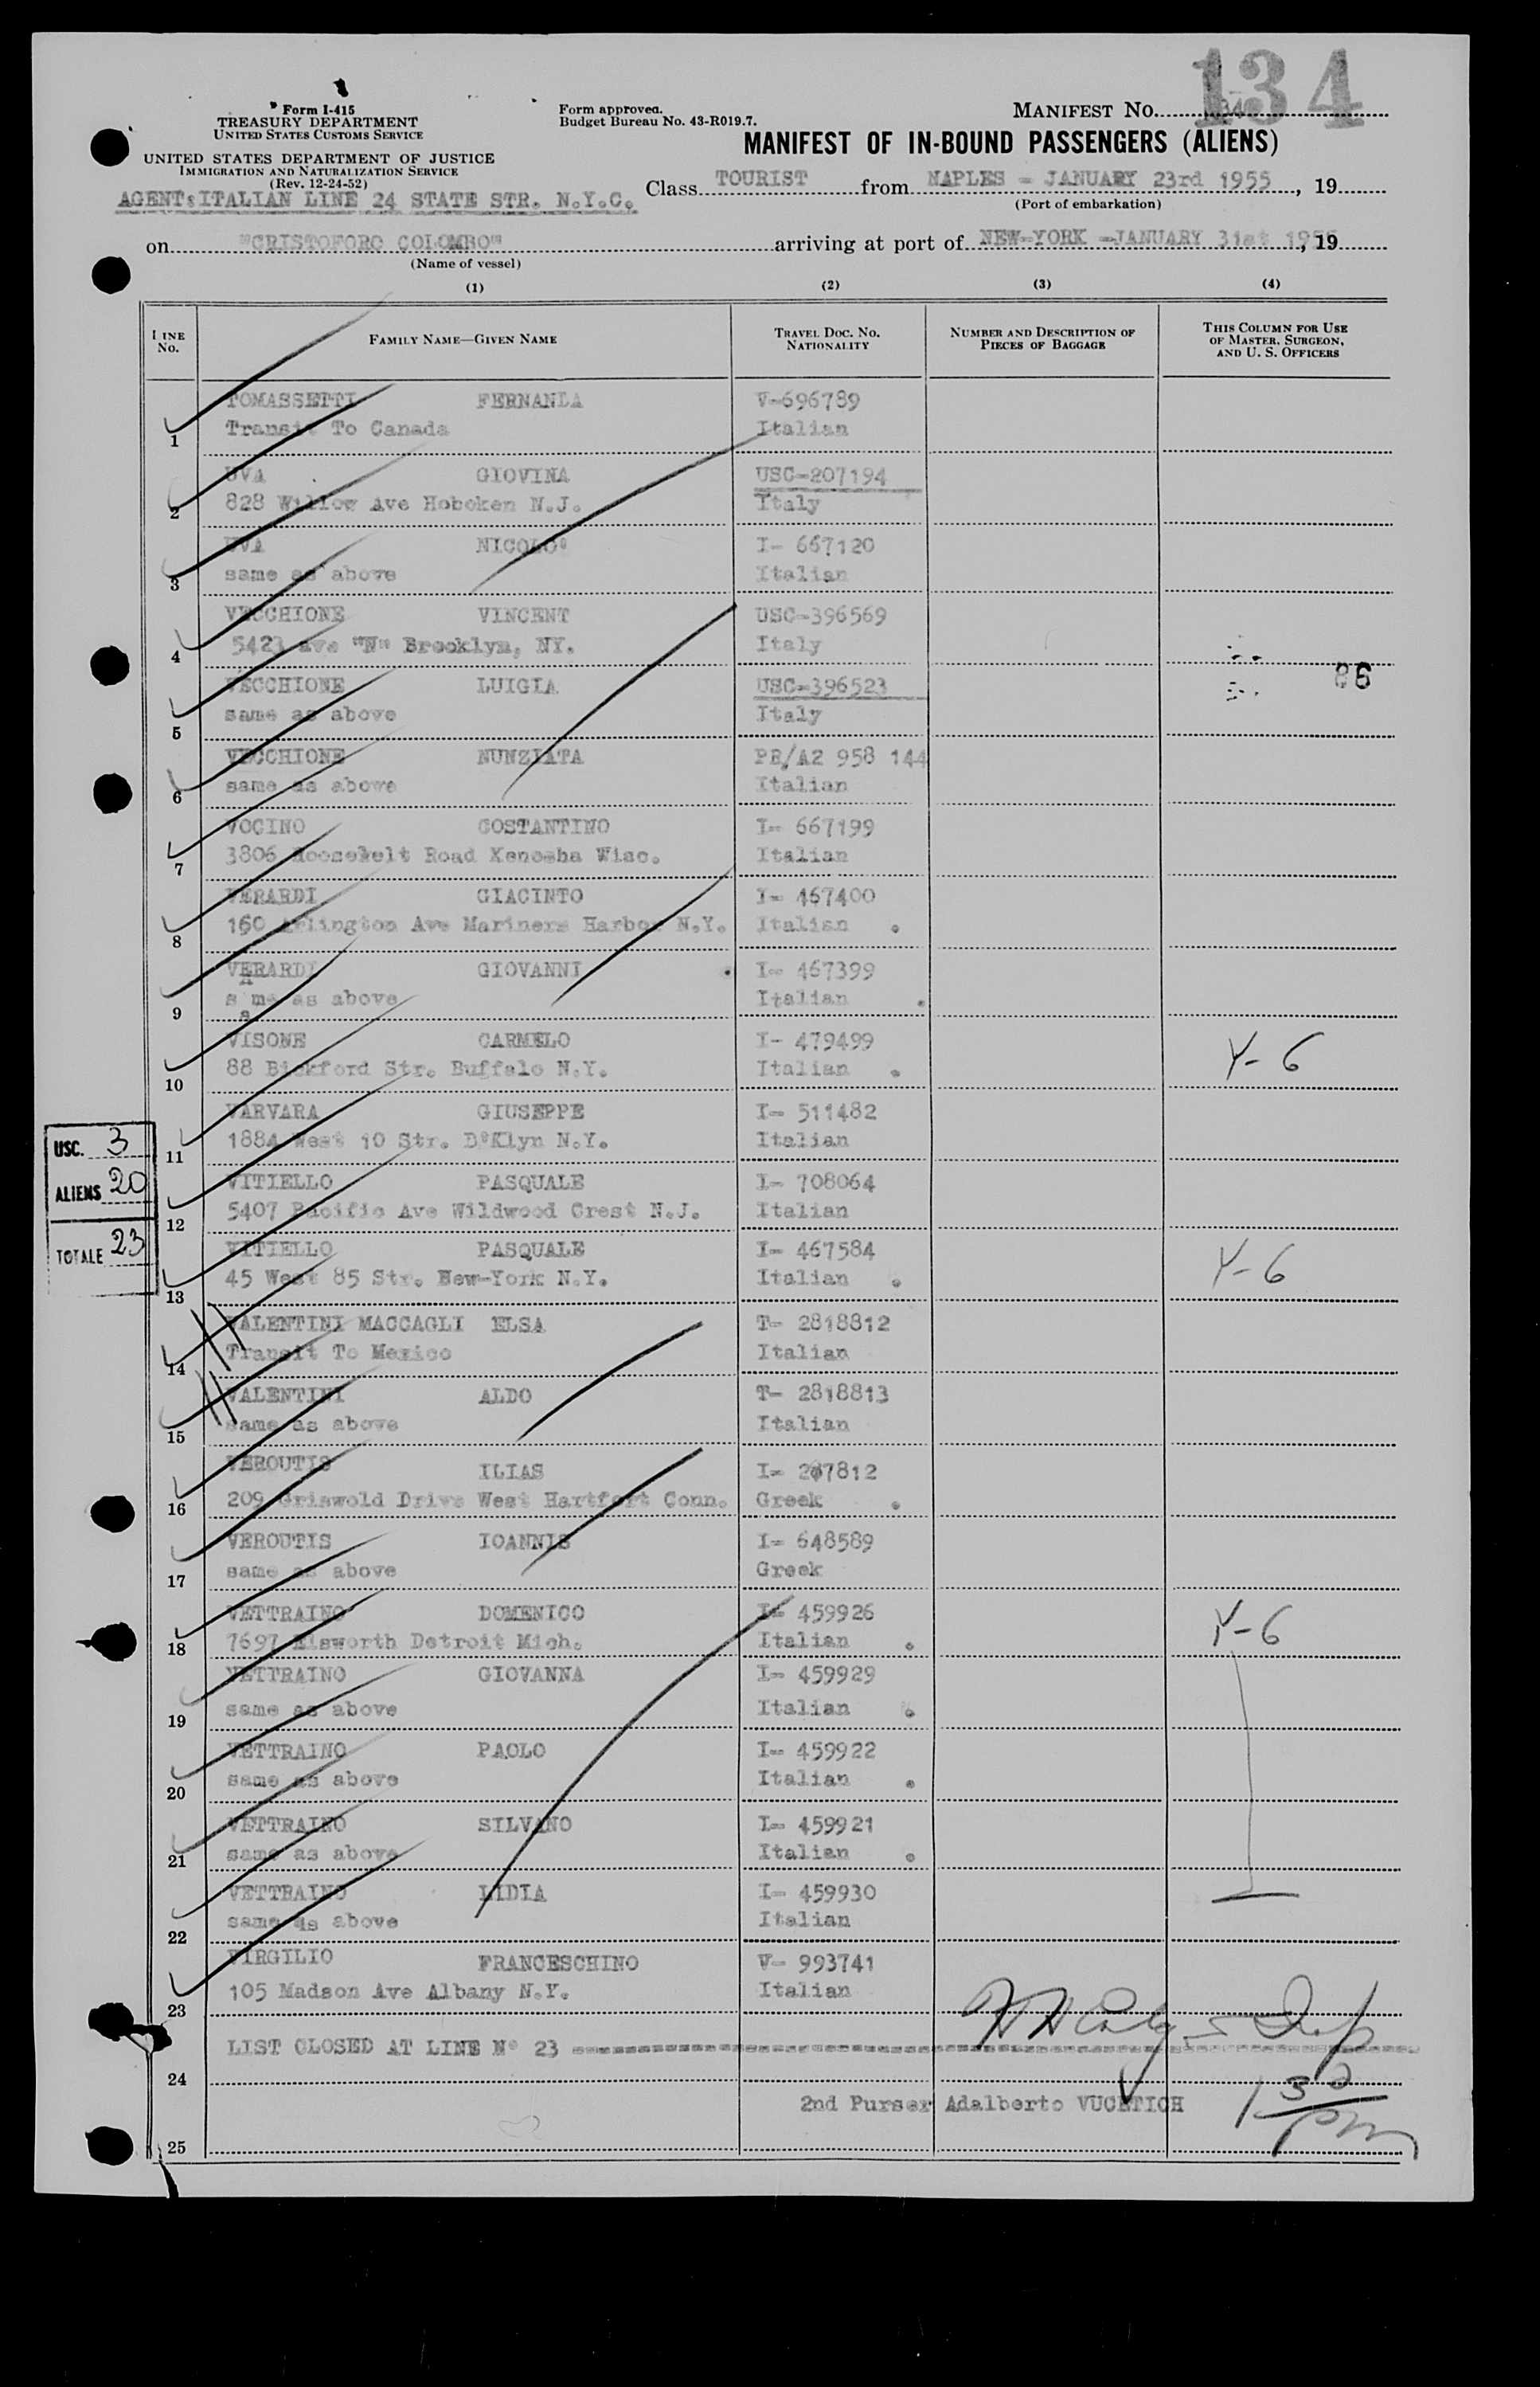 134
Form I-415
TREASURY DEPARTMENT
UNITED STATES CUSTOMS SERVICE
UNITED STATES DEPARTMENT OF JUSTICE
IMMIGRATION AND NATURALIZATION SERVICE
(Rev. 12-24-52)
AGENT:ITALIAN LINE 24 STATE STR. N.Y.C.
Form approved.
Budget Bureau No. 43-R019.7.
MANIFEST NO.
MANIFEST OF IN-BOUND PASSENGERS (ALIENS)
Class TOURIST from NAPLES - JANUARY 23rd 1955, 19
(Port of embarkation)
on "CRISTOFORO COLOMBO" arriving at port of NEW-YORK -JANUARY 31st 1955, 19
(Name of vessel)
(1) (2) (3) (4)
LINE No. FAMILY NAME—GIVEN NAME TRAVEL DOC. NO. NATIONALITY NUMBER AND DESCRIPTION OF PIECES OF BAGGAGE THIS COLUMN FOR USE OF MASTER, SURGEON, AND U. S. OFFICERS
TOMASSETTI FERNANDA V-696789
1 Transit To Canada Italian
UVA GIOVINA USC-207194
2 828 Willow Ave Hoboken N.J. Italy
UVA NICOLO' I- 667120
3 same as above Italian
VECCHIONE VINCENT USC-396569
4 5421 ave "N" Brooklyn, NY. Italy
VECCHIONE LUIGIA USC-396523 86
5 same as above Italy
VECCHIONE NUNZIATA PR/A2 958 144
6 same as above Italian
VOCINO COSTANTINO I- 667199
7 3806 Roosekelt Road Kenosha Wisc. Italian
VERARDI GIACINTO I- 467400
8 160 Arlington Ave Mariners Harbor N.Y. Italian
VERARDI GIOVANNI I- 467399
9 same as above Italian
VISONE CARMELO I- 479499 Y-6
10 88 Bickford Str. Buffalo N.Y. Italian
VARVARA GIUSEPPE I- 511482
11 1884 West 10 Str. B'Klyn N.Y. Italian
VITIELLO PASQUALE I- 708064
12 5407 Pacific Ave Wildwood Crest N.J. Italian
VITIELLO PASQUALE I- 467584 Y-6
13 45 West 85 Str. New-York N.Y. Italian
VALENTINI MACCAGLI ELSA T- 2818812
14 Transit To Mexico Italian
VALENTINI ALDO T- 2818813
15 same as above Italian
VEROUTIS ILIAS I- 7812
16 209 Griswold Drive West Hartfort Conn. Greek
VEROUTIS IOANNIS I- 648589
17 same as above Greek
VETTRAINO DOMENICO I- 459926 Y-6
18 7697 Elsworth Detroit Mich. Italian
VETTRAINO GIOVANNA I- 459929
19 same as above Italian
VETTRAINO PAOLO I- 459922
20 same as above Italian
VETTRAINO SILVANO I- 459921
21 same as above Italian
VETTRAINO LIDIA I- 459930
22 same as above Italian
VIRGILIO FRANCESCHINO V- 993741
23 105 Madson Ave Albany N.Y. Italian
LIST CLOSED AT LINE N° 23
24
2nd Purser Adalberto VUCETICH
25
USC. 3
ALIENS 20
TOTALE 23